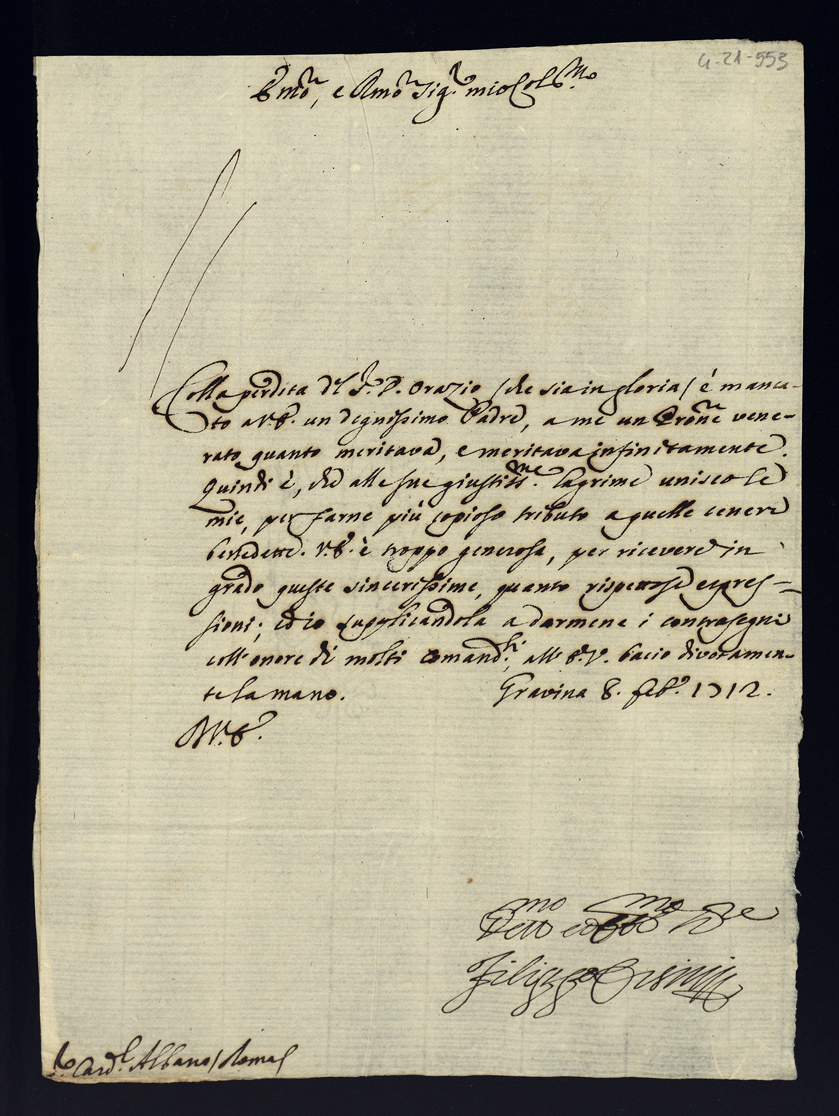 4-21-553
Emo, e Rmo Sig.r mio Col.mo
Colla perdita del S.r D. Orazio /che sia in gloria/ è manca-
to a V.E. un degnissimo Padre, a me un Prone vene-
rato quanto meritava, e meritava infinitamente.
Quindi è, che alle sue giustiss.me lagrime unisco le
mie, per farne più copioso tributo a quelle ceneri
benedette. V.E. è troppo generosa, per ricevere in
grado queste sincerissime, quanto rispettose espres-
sioni; ed io supplicandola a darmene i contrasegni
coll'onore di molti comand.ti, all'E.V. bacio divotamen-
te la mano. Gravina 8. Feb.o 1712.
D.V.E.
Devmo ed Obbmo Sre
Filippo Orsini
S. Card.l Albano / Roma/